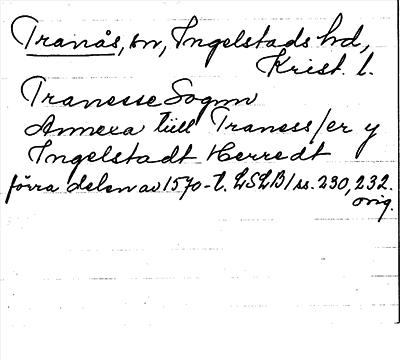 Tranås, sn, Ingelstads hd,
Krist. l.
Tranesse Sognn
Annexa tiill Traness/er y
Ingelstadt Herredt
förra delen av 1570-t. LSLB/ss. 230, 232.
orig.